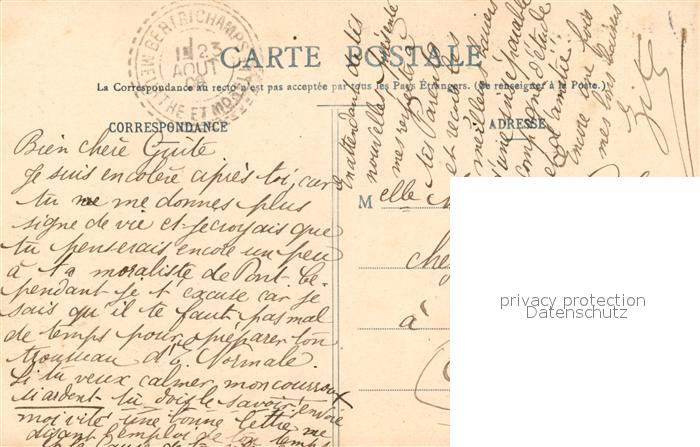 BERTRICHAMPS
1
23
AOUT
MEURTHE ET MOSELLE
CARTE POSTALE
La Correspondance au recto n'est pas acceptée par tous les Pays Étrangers. (Se renseigner à la Poste.)
CORRESPONDANCE
ADRESSE
Bien chère Guite
Je suis en colère après toi, car
tu ne me donnes plus
signe de vie et je croyais que
tu penserais encore un peu
à ta moraliste de Pont. Ce-
pendant je t'excuse car je
sais qu'il te faut pas mal
de temps pour préparer ton
trousseau d'É. Normale.
Si tu veux calmer mon courroux
si ardent tu dois le savoir, envoie
moi vite une bonne lettre me
disant l'emploi de ton temps
En attendant de tes
nouvelles présente
mes respects à
tes Parents
et reçois les
meilleurs baisers
d'une inséparable
compagne d'étude
et d'amitié
encore une fois
mes bons baisers
Melle
chez
à
privacy protection
Datenschutz